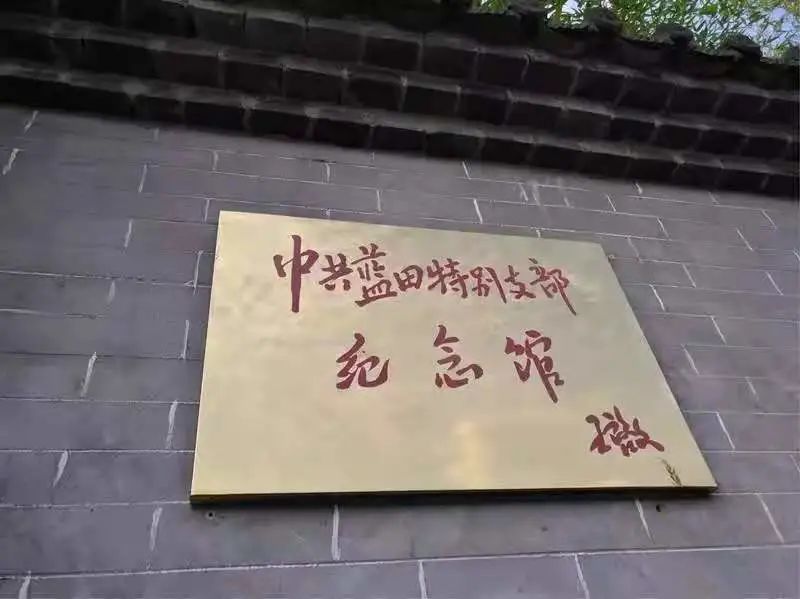 中共蓝田特别支部
纪念馆